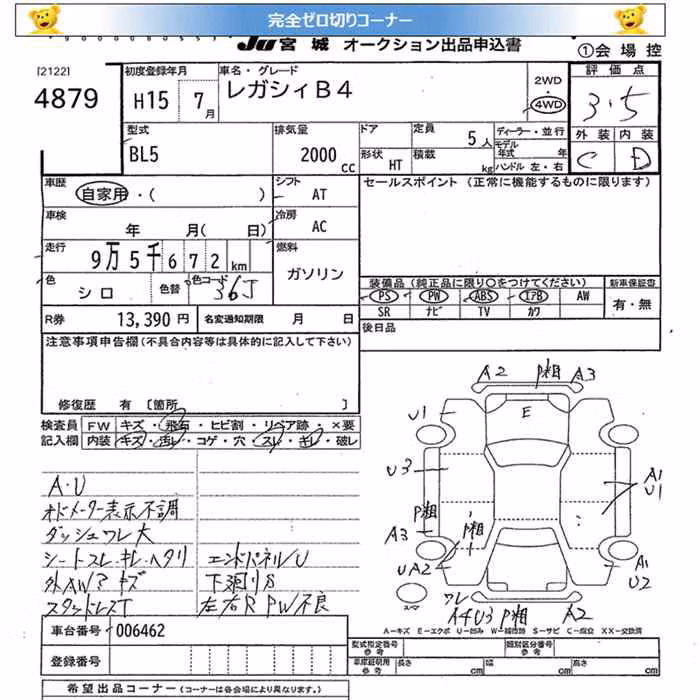 完全ゼロ切りコーナー
JU 宮 城 オークション出品申込書
①会 場 控
[2122]
4879
初度登録年月
H15 7月
車名・グレード
レガシィB4
2WD
4WD
評 価 点
3.5
外 装 内 装
C D
型式
BL5
排気量
2000 cc
ドア
形状 HT
定員 5人
積載 kg
ディーラー・並行
モデル年式 年
ハンドル 左・右
車歴
自家用・( )
シフト
AT
車検
年 月( 日)
冷房
AC
走行
9万5千672 km
燃料
ガソリン
色
シロ
色替
色コード
36J
R券 13,390 円
名変通知期限 月 日
セールスポイント (正常に機能するものに限ります)
装備品(純正品に限り○をつけてください)
新車保証書
PS PW ABS エアB AW
SR ナビ TV カワ
有・無
後日品
注意事項申告欄(不具合内容等は具体的に記入して下さい)
修復歴 有 〔箇所 〕
検査員 FW キズ・飛石・ヒビ割・リペア跡・×要
記入欄 内装 キズ・汚レ・コゲ・穴・スレ・キレ・破レ
A・U
オドメーター表示不調
ダッシュワレ大
シートスレ・キレ・ヘタリ
エンドパネルU
外AWア キズ
下廻りS
スタッドレスT
左右R PW不良
A2 P相 A3
U1
E
U3
A1
U1
P相
A3
P相
UA2
A1
U2
スマ
ワレ
A4U3 P相 A2
A−キズ E−エクボ U−凹み W−補修跡 S−サビ C−腐食 XX−交換済
車台番号 006462
登録番号
型式指定番号
参考
類別区分番号
参考
車庫証明用
参考
長さ cm
幅 cm
高さ cm
希望出品コーナー (コーナーは各会場により異なります。)